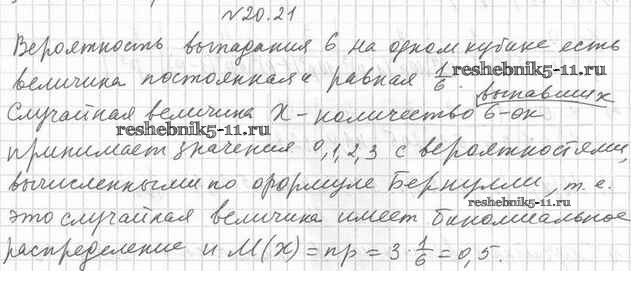 №20.21
Вероятность выпадания 6 на одном кубике есть
величина постоянная и равная 1/6.
reshebnik5-11.ru
выпавших
Случайная величина X – количество 6-ок
reshebnik5-11.ru
принимает значения 0,1,2,3 с вероятностями,
вычисленными по формуле Бернулли, т.е.
это случайная величина имеет биномиальное
распределение и M(x) = np = 3·1/6 = 0,5.